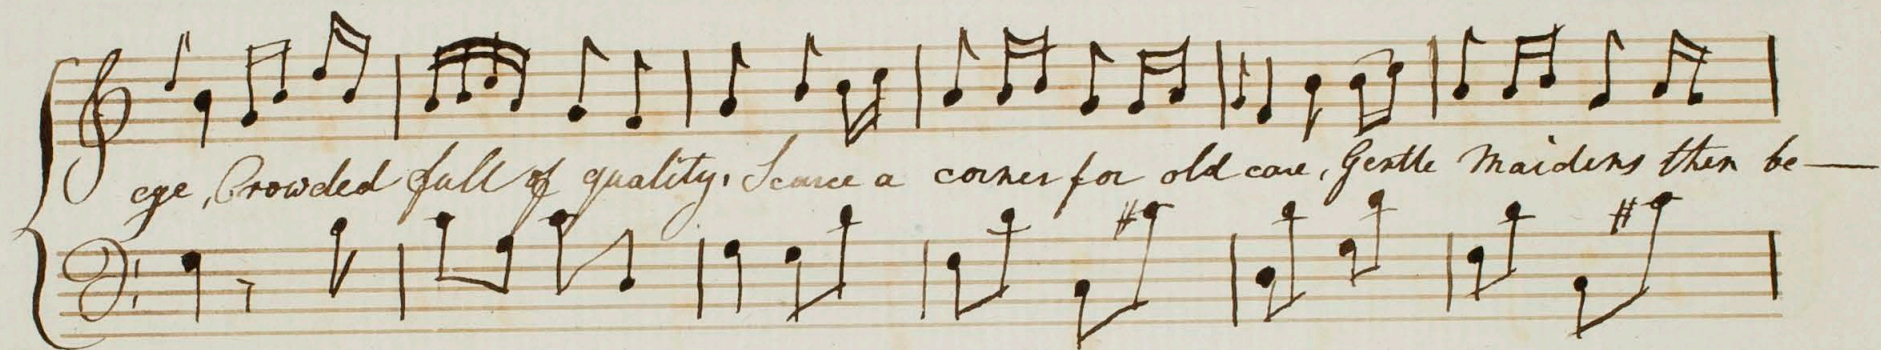 ege, Crowded full of quality, Scarce a corner for old care, Gentle Maidens then be—